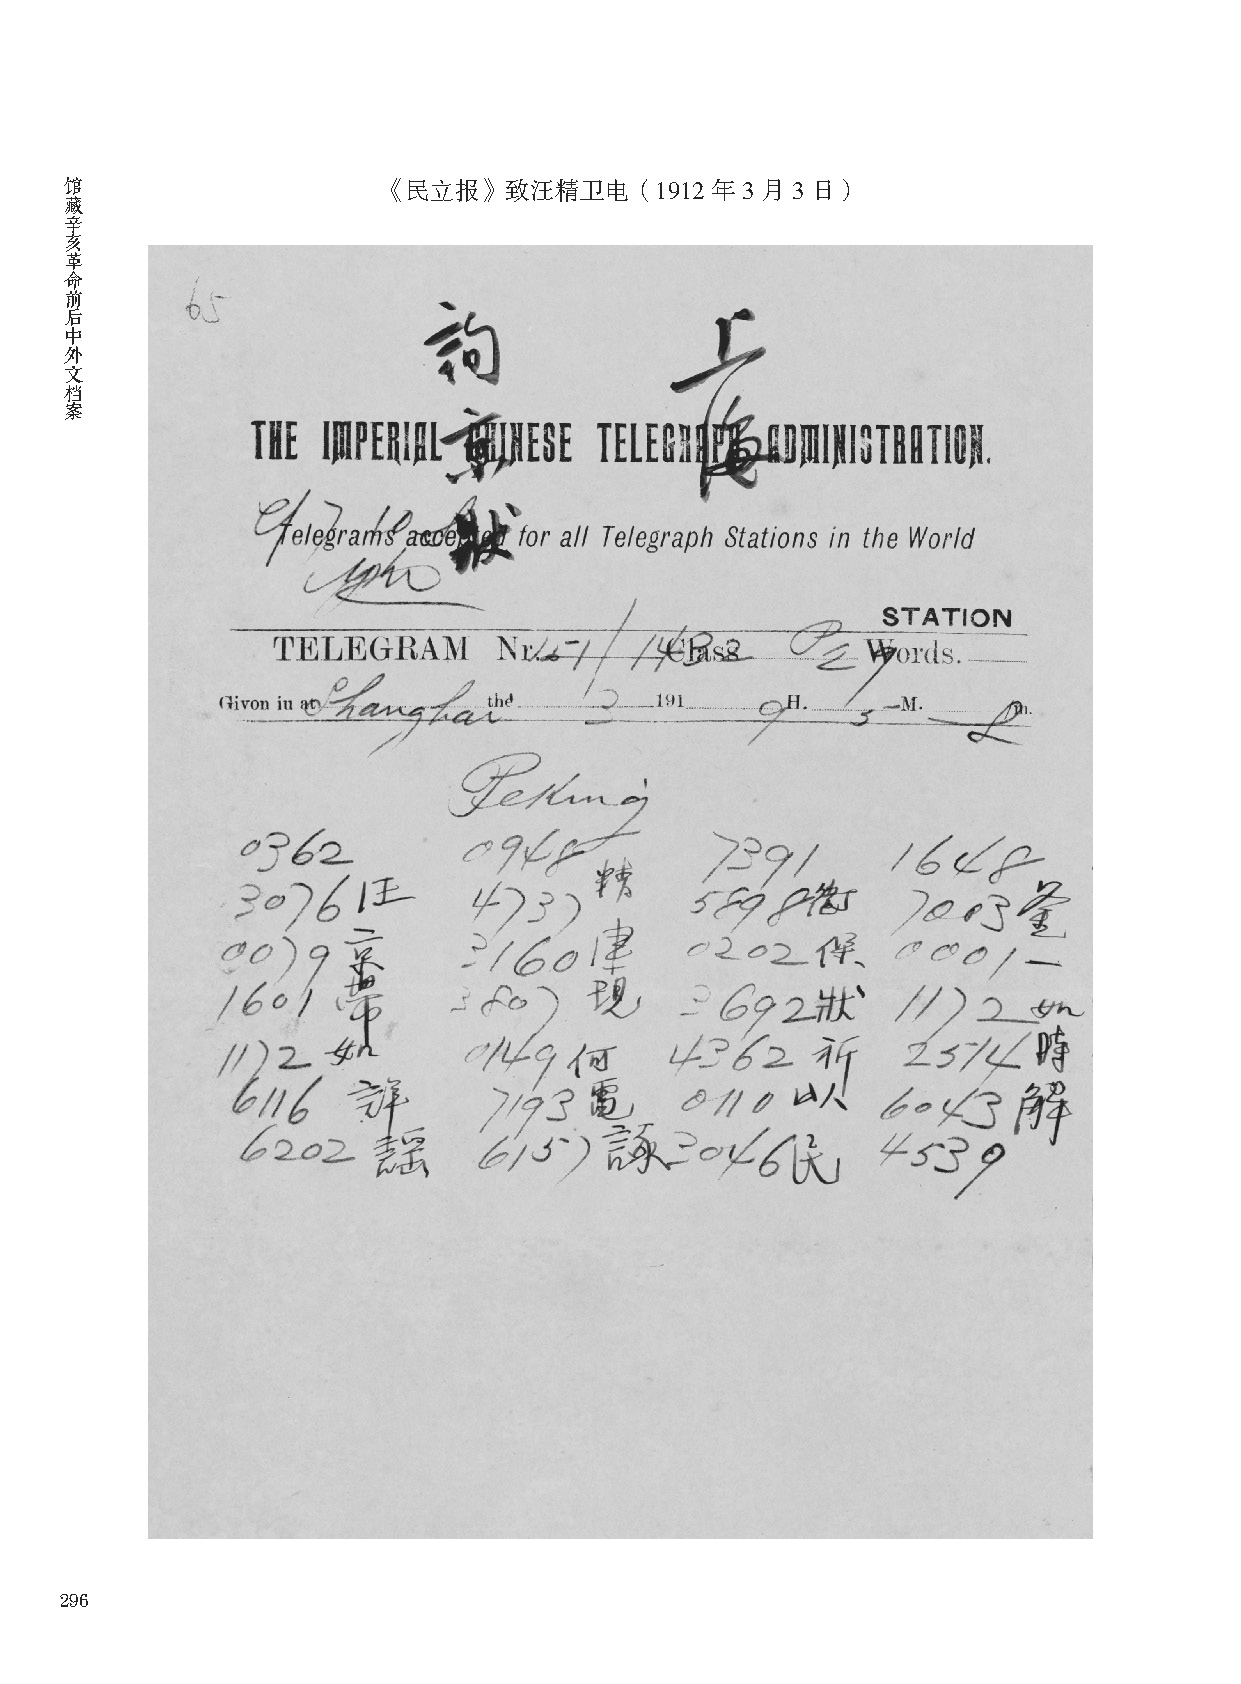 馆藏辛亥革命前后中外文档案
《民立报》致汪精卫电（1912 年 3 月 3 日）
65
上海
詢京狀
THE IMPERIAL CHINESE TELEGRAPH ADMINISTRATION.
Telegrams accepted for all Telegraph Stations in the World
STATION
TELEGRAM Nr. 151/1433 Class Words.
Given in at Shanghai the 3 191 9 H. 5 M. m.
Peking
0362 0948 7391 1648
3076 汪 4737 精 5898 衛 7003 鉴
0079 京 3160 津 0202 保 0001 一
1601 帶 3807 現 3692 狀 1172 如
1172 如 0149 何 4362 祈 2514 時
6116 詳 7193 電 0110 以 6043 解
6202 謠 6157 諑 3046 民 4539
296